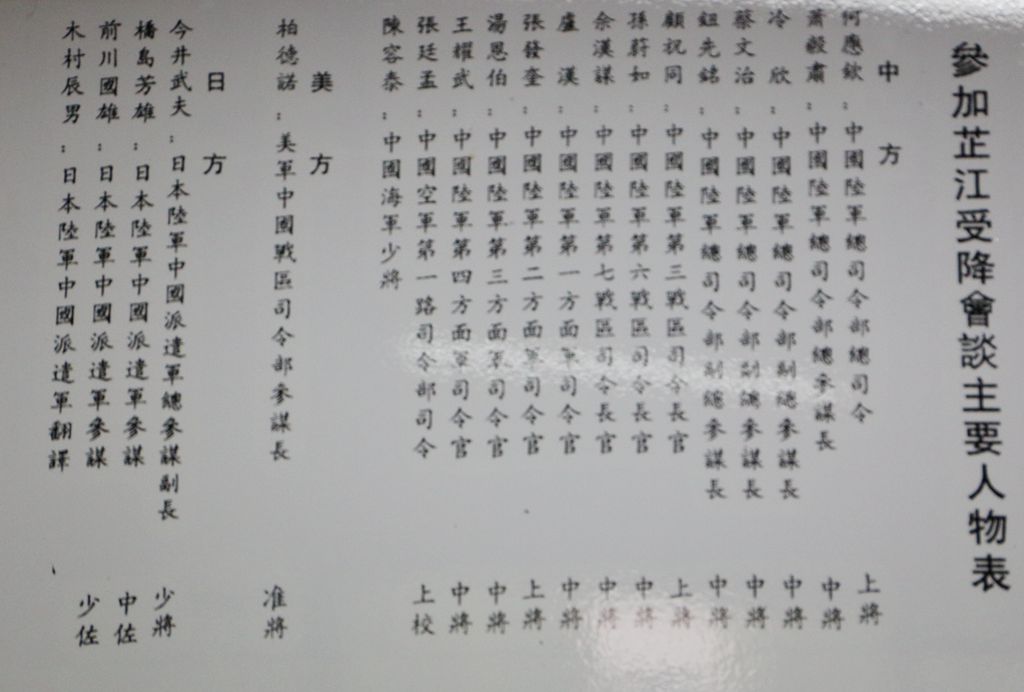 參加芷江受降會談主要人物表
中方
何應欽：中國陸軍總司令部總司令 上將
蕭毅肅：中國陸軍總司令部總參謀長 中將
冷欣：中國陸軍總司令部副總參謀長 中將
蔡文治：中國陸軍總司令部副總參謀長 中將
鈕先銘：中國陸軍總司令部副總參謀長 中將
顧祝同：中國陸軍第三戰區司令長官 上將
孫蔚如：中國陸軍第六戰區司令長官 中將
余漢謀：中國陸軍第七戰區司令長官 中將
盧漢：中國陸軍第一方面軍司令官 中將
張發奎：中國陸軍第二方面軍司令官 上將
湯恩伯：中國陸軍第三方面軍司令官 中將
王耀武：中國陸軍第四方面軍司令官 中將
張廷孟：中國空軍第一路司令部司令 上校
陳容泰：中國海軍少將
美方
柏德諾：美軍中國戰區司令部參謀長 准將
日方
今井武夫：日本陸軍中國派遣軍總參謀副長 少將
橋島芳雄：日本陸軍中國派遣軍參謀 中佐
前川國雄：日本陸軍中國派遣軍參謀 少佐
木村辰男：日本陸軍中國派遣軍翻譯